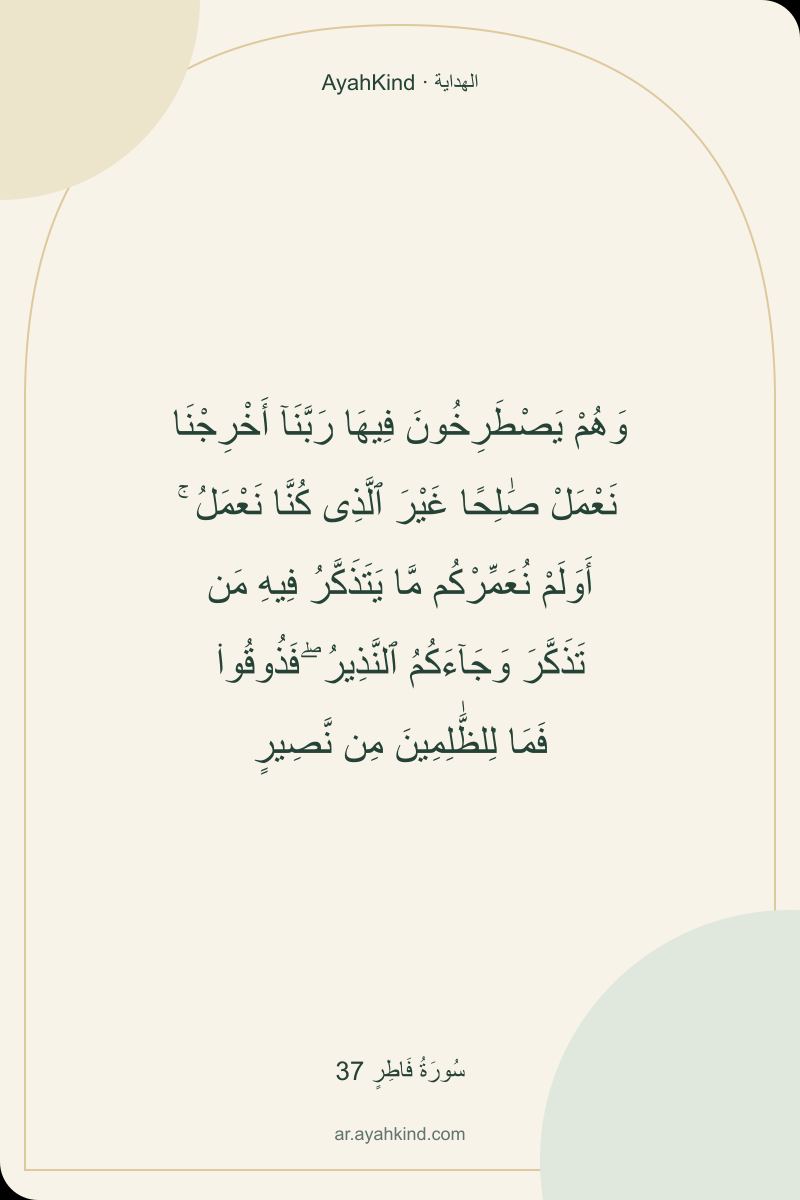 AyahKind · الهداية
وَهُمْ يَصْطَرِخُونَ فِيهَا رَبَّنَآ أَخْرِجْنَا
نَعْمَلْ صَٰلِحًا غَيْرَ ٱلَّذِى كُنَّا نَعْمَلُ ۚ
أَوَلَمْ نُعَمِّرْكُم مَّا يَتَذَكَّرُ فِيهِ مَن
تَذَكَّرَ وَجَآءَكُمُ ٱلنَّذِيرُ ۖ فَذُوقُوا۟
فَمَا لِلظَّٰلِمِينَ مِن نَّصِيرٍ
سُورَةُ فَاطِرٍ 37
ar.ayahkind.com